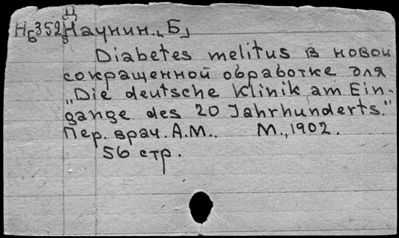 Н 6/3 352 Наунин., Б.
Diabetes melitus в новой
сокращенной обработке для
„Die deutsche Klinik am Ein-
gange des 20 Jahrhunderts."
Пер. врач. А.М.. М., 1902.
56 стр.